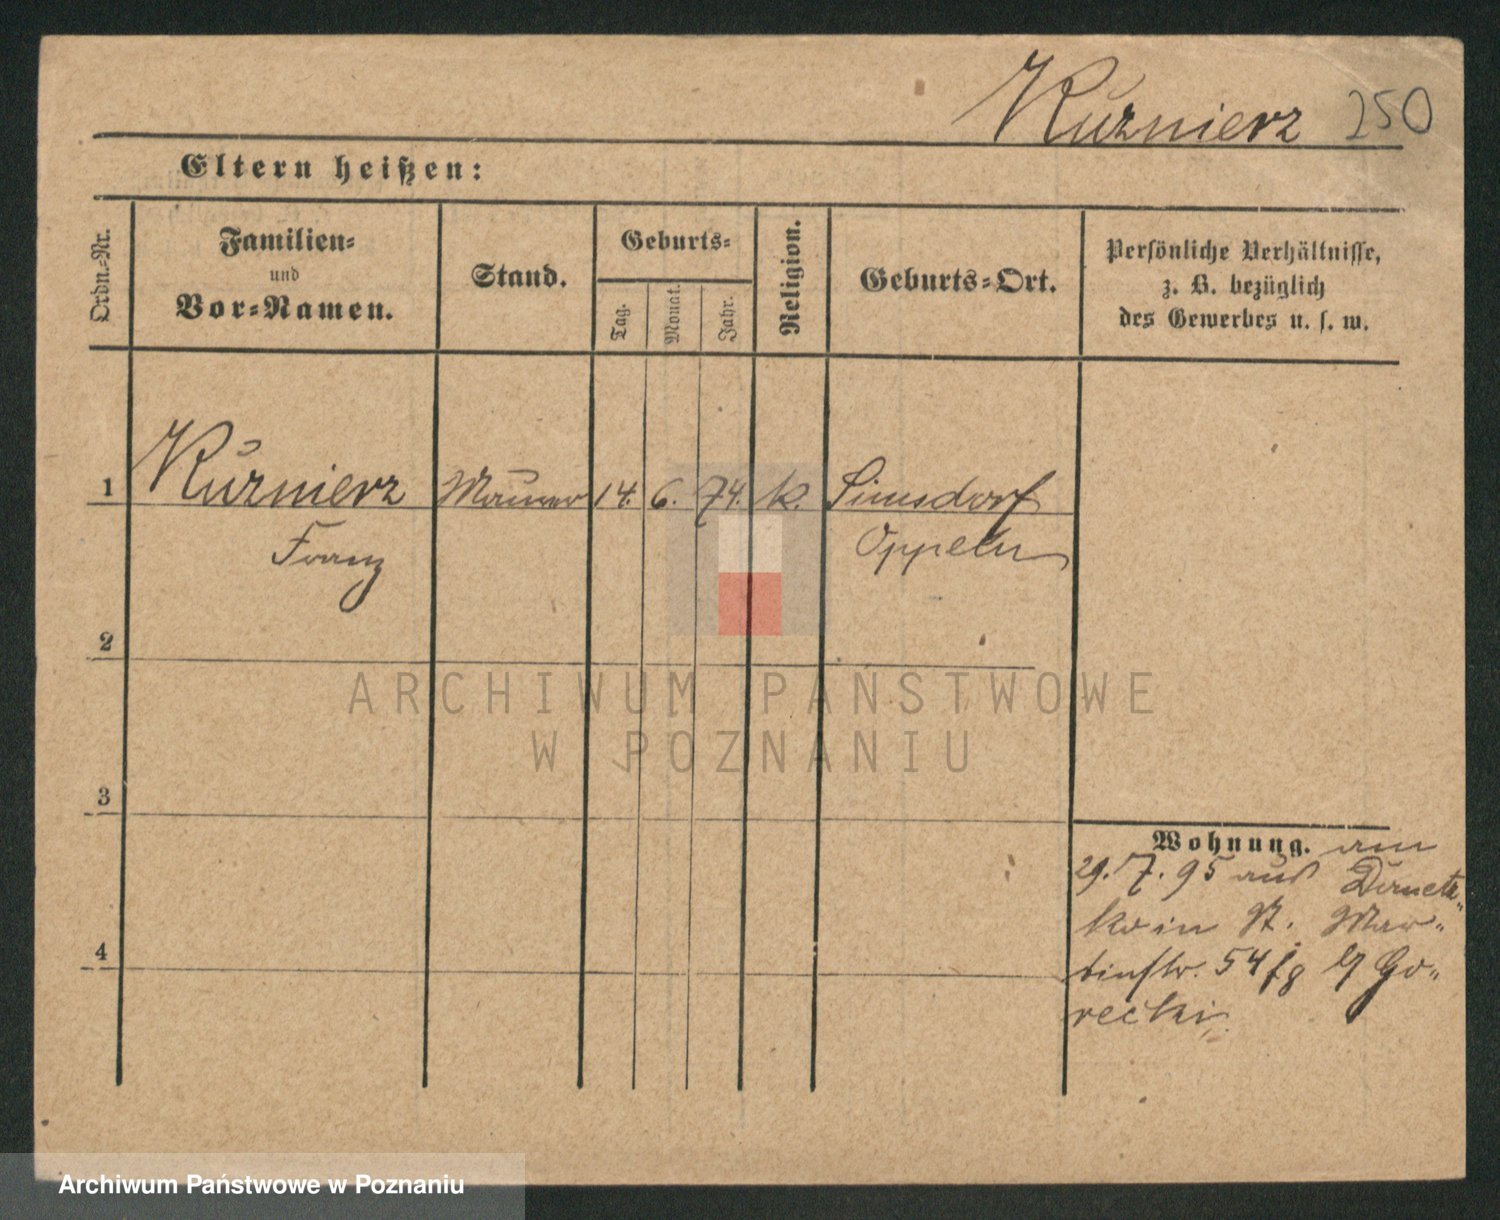 Kurnierz 250
Eltern heißen:
Ordn.-Nr.
Familien-
und
Vor-Namen.
Stand.
Geburts-
Tag.
Monat.
Jahr.
Religion.
Geburts-Ort.
Persönliche Verhältnisse,
z. B. bezüglich
des Gewerbes u. s. w.
1 Kurnierz Maurer 14. 6. 74. k. Simsdorf
Franz Oppeln
2
3
4
Wohnung. am
29. 7. 95 aus
ko in St. Mar-
tinstr. 54 b/ Go-
recki
ARCHIWUM PAŃSTWOWE
W POZNANIU
Archiwum Państwowe w Poznaniu